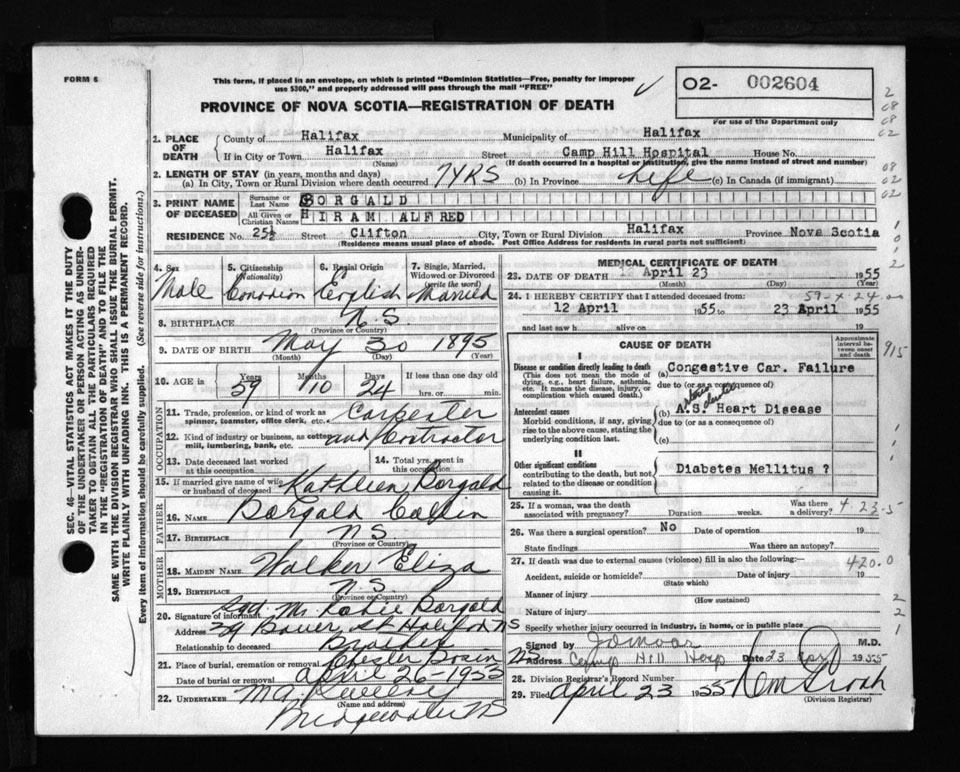 FORM 6
This form, if placed in an envelope, on which is printed "Dominion Statistics—Free, penalty for improper
use $300," and properly addressed will pass through the mail "FREE"
02- 002604
For use of the Department only
PROVINCE OF NOVA SCOTIA—REGISTRATION OF DEATH
1. PLACE OF DEATH County of Halifax Municipality of Halifax
If in City or Town Halifax Street Camp Hill Hospital House No.
(Name) (If death occurred in a hospital or institution, give the name instead of street and number)
2. LENGTH OF STAY (in years, months and days)
(a) In City, Town or Rural Division where death occurred 7 YRS (b) In Province Life (c) In Canada (if immigrant)
3. PRINT NAME OF DECEASED Surname or Last Name BORGALD
All Given or Christian Names HIRAM ALFRED
RESIDENCE No. 25½ Street Clifton City, Town or Rural Division Halifax Province Nova Scotia
(Residence means usual place of abode. Post Office Address for residents in rural parts not sufficient)
4. Sex Male
5. Citizenship (Nationality) Canadian
6. Racial Origin English
7. Single, Married, Widowed or Divorced (write the word) Married
8. BIRTHPLACE N.S.
(Province or Country)
9. DATE OF BIRTH May 30 1895
(Month) (Day) (Year)
10. AGE in Years 59 Months 10 Days 24 If less than one day old hrs. or min.
OCCUPATION
11. Trade, profession, or kind of work as spinner, teamster, office clerk, etc. Carpenter
12. Kind of industry or business, as cotton mill, lumbering, bank, etc. Contractor
13. Date deceased last worked at this occupation
14. Total yrs. spent in this occupation
15. If married give name of wife or husband of deceased Kathleen Borgald
FATHER
16. NAME Borgald
17. BIRTHPLACE N S
(Province or Country)
MOTHER
18. MAIDEN NAME Walker Eliza
19. BIRTHPLACE N S
(Province or Country)
20. Signature of informant Sgd. Borgald
Address St Halifax NS
Relationship to deceased Brother
21. Place of burial, cremation or removal Chester Basin NS
Date of burial or removal April 26-1955
22. UNDERTAKER
(Name and address)
Bridgewater NS
MEDICAL CERTIFICATE OF DEATH
23. DATE OF DEATH April 23 1955
(Month) (Day) (Year)
24. I HEREBY CERTIFY that I attended deceased from: 59-X-24
12 April 1955 to 23 April 1955
and last saw h alive on 19
CAUSE OF DEATH
Approximate interval between onset and death
I
Disease or condition directly leading to death
(This does not mean the mode of dying, e.g., heart failure, asthenia, etc. It means the disease, injury, or complication which caused death.)
(a) Congestive Car. Failure
due to (or as a consequence of)
Antecedent causes
Morbid conditions, if any, giving rise to the above cause, stating the underlying condition last.
(b) A.S. Heart Disease
due to (or as a consequence of)
(c)
II
Other significant conditions
contributing to the death, but not related to the disease or condition causing it.
Diabetes Mellitus ?
25. If a woman, was the death associated with pregnancy? Duration weeks. Was there a delivery? 4-23-5
26. Was there a surgical operation? No Date of operation 19
State findings Was there an autopsy?
27. If death was due to external causes (violence) fill in also the following: 420.0
Accident, suicide or homicide? Date of injury 19
(State which)
Manner of injury
(How sustained)
Nature of injury
Specify whether injury occurred in industry, in home, or in public place
Signed by M.D.
Address Camp Hill Hosp Date 23 Apr 1955
28. Division Registrar's Record Number
29. Filed April 23 1955
(Division Registrar)
SEC. 46—VITAL STATISTICS ACT MAKES IT THE DUTY
OF THE UNDERTAKER OR PERSON ACTING AS UNDER-
TAKER TO OBTAIN ALL THE PARTICULARS REQUIRED
IN THE "REGISTRATION OF DEATH" AND TO FILE THE
SAME WITH THE DIVISION REGISTRAR WHO SHALL ISSUE THE BURIAL PERMIT.
WRITE PLAINLY WITH UNFADING INK. THIS IS A PERMANENT RECORD.
Every item of information should be carefully supplied. (See reverse side for instructions.)
2
08
08
02
08
02
02
915
2
2
1